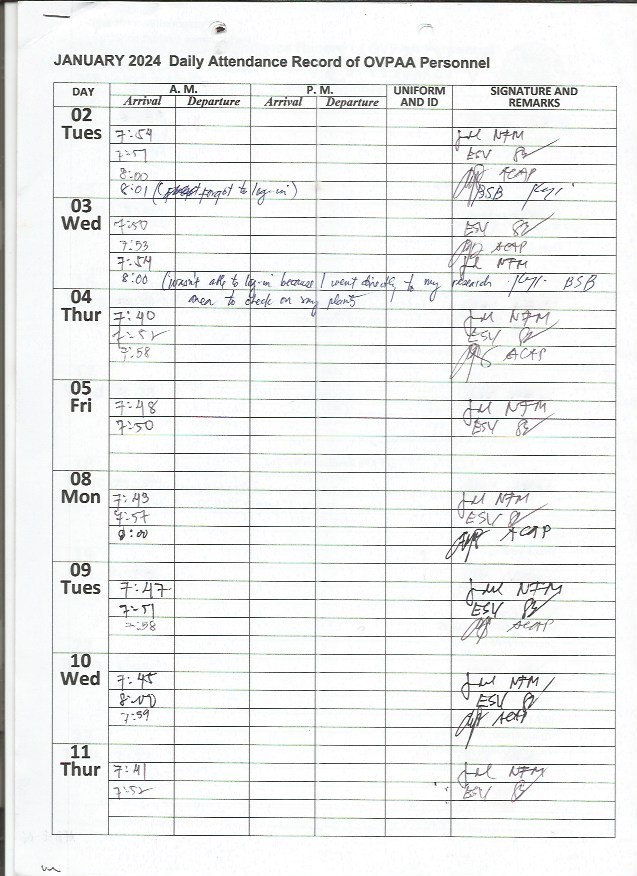 JANUARY 2024 Daily Attendance Record of OVPAA Personnel
DAY A. M. P. M. UNIFORM AND ID SIGNATURE AND REMARKS
Arrival Departure Arrival Departure
02 Tues
7:54 NFM
7:57 ESV
8:00 ACAP
8:01 (forgot to log-in) BSB
03 Wed
7:50 ESV
7:53 ACAP
7:54 NFM
8:00 (wasn't able to log-in because I went directly to my research BSB
area to check on my plants
04 Thur
7:40 NFM
7:52 ESV
7:58 ACAP
05 Fri
7:48 NFM
7:50 ESV
08 Mon
7:43 NFM
7:57 ESV
8:00 ACAP
09 Tues
7:47 NFM
7:51 ESV
7:58 ACAP
10 Wed
7:45 NFM
8:00 ESV
7:59 ACAP
11 Thur
7:41 NFM
7:52 ESV